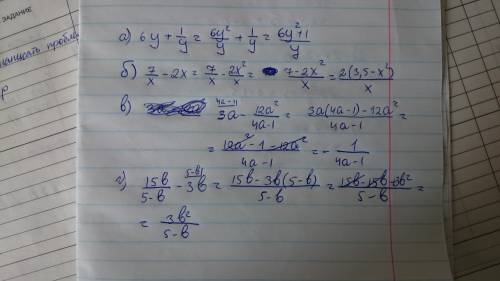 задание
написать пробле
р
а) 6y + 1/y = 6y²/y + 1/y = (6y²+1)/y
б) 7/x - 2x = 7/x - 2x²/x = (7-2x²)/x = 2(3,5-x²)/x
в) 3a^(4a-1) - 12a²/(4a-1) = (3a(4a-1)-12a²)/(4a-1) =
= (12a²-1-12a²)/(4a-1) = - 1/(4a-1)
г) 15b/(5-b) - 3b^(5-b) = (15b-3b(5-b))/(5-b) = (15b-15b+3b²)/(5-b) =
= 3b²/(5-b)